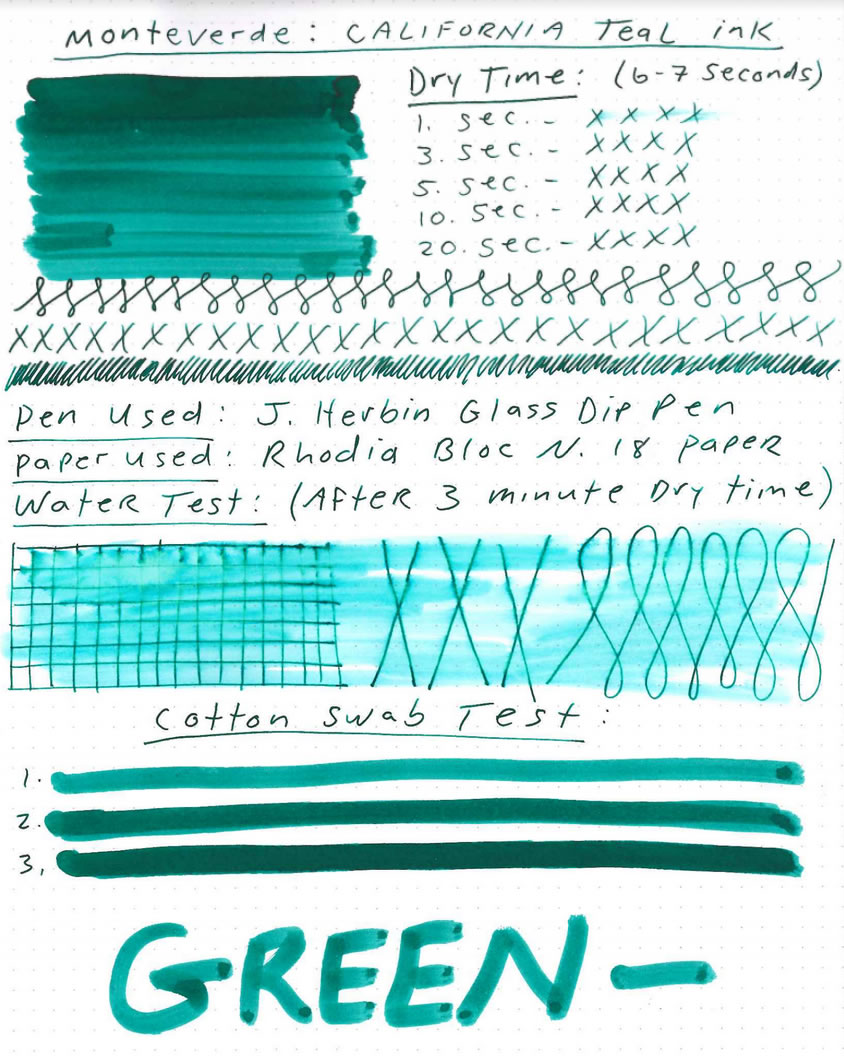 Monteverde: CALIFORNIA Teal ink
Dry Time: (6-7 seconds)
1. sec. - x x x x
3. sec. - x x x x
5. sec. - x x x x
10. sec. - x x x x
20. sec. - x x x x
x x x x x x x x x x x x x x x x x x x x x x x x x x x x
Pen Used: J. Herbin Glass Dip Pen
Paper used: Rhodia Bloc N. 18 paper
Water Test: (After 3 minute Dry time)
X X X
Cotton Swab Test:
1.
2.
3.
GREEN-